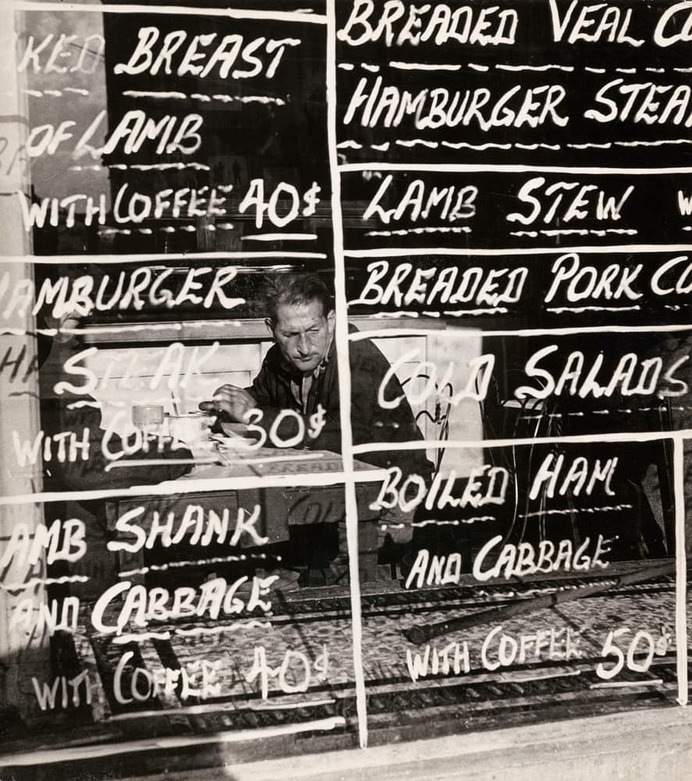 KED BREAST
OF LAMB
WITH COFFEE 40¢
HAMBURGER
STEAK
WITH COFFEE 30¢
AMB SHANK
AND CABBAGE
WITH COFFEE 40¢
BREADED VEAL C
HAMBURGER STEA
LAMB STEW W
BREADED PORK C
COLD SALADS
BOILED HAM
AND CABBAGE
WITH COFFEE 50¢